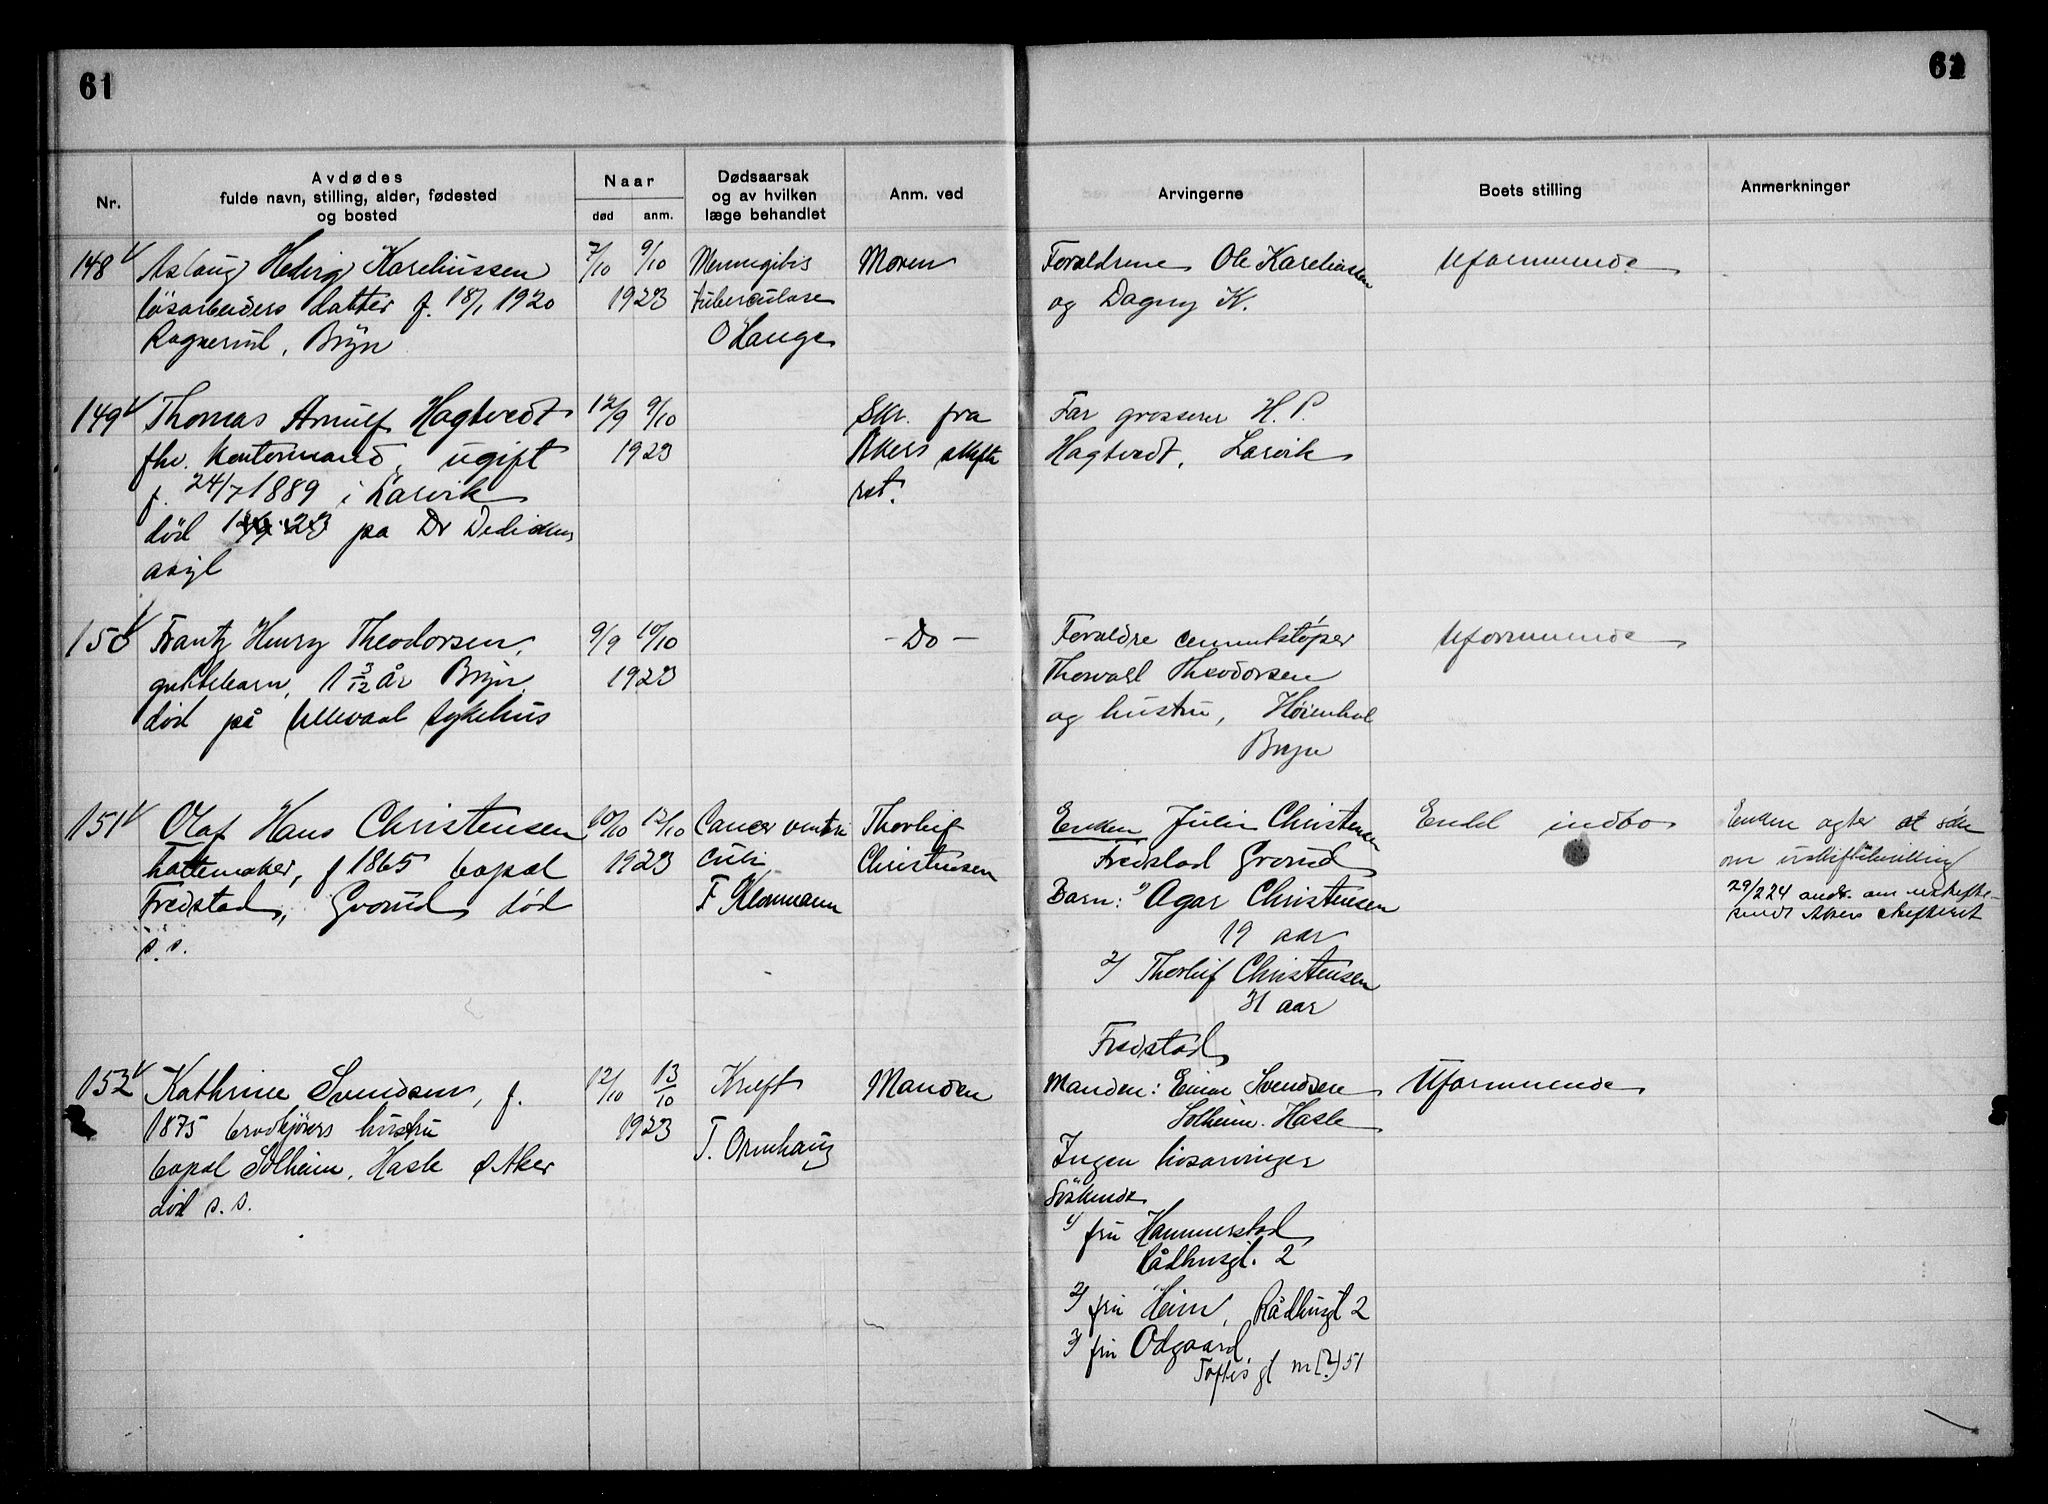 61
62
Nr.
Avdødes
fulde navn, stilling, alder, fødested
og bosted
Naar
død
anm.
Dødsaarsak
og av hvilken
læge behandlet
Anm. ved
Arvingerne
Boets stilling
Anmerkninger
148 Aslaug Hedvig Kareliussen
løsarbeiders datter f. 18/1 1920
Ragnerud, Bryn
7/10 9/10
1923
Meningitis
tuberculose
O Hauge
Moren
Foreldrene Ole Kareliussen
og Dagny K.
Uformuende
149 Thomas Arnulf Hagtvedt
fhv. kontormand, ugift
f. 24/7 1889 i Larvik
død 12/9 23 pa Dr Dedichens
asyl
12/9 9/10
1923
Skr. fra
Akers skifte
ret.
Far grosserer H. P.
Hagtvedt, Larvik
150 Frantz Henry Theodorsen,
guttebarn, 1 3/12 år Bryn
død på Ullevaal sykehus
9/9 10/10
1923
- Do -
Foreldre cementstøper
Thorvald Theodorsen
og hustru, Høienhal
Bryn
Uformuende
151 Olaf Hans Christensen
hattemaker, f 1865 bopæl
Fredstad, Grorud død
s. s.
10/10 12/10
1923
Cancer ventri
culi
F Klonmann
Thorleif
Christensen
Enken Julie Christensen
Fredstad Grorud
Barn: 1) Agar Christensen
19 aar
2) Thorleif Christensen
31 aar
Fredstad
Endel indbo
Enken agter at søke
om uskiftebevilling
29/2 24 ands. om uskifte
sendt Akers skifteret
152 Kathrine Svendsen, f.
1875 brødkjørers hustru
bopæl Solheim, Hasle Ø Aker
død s. s.
12/10 13/10
1923
Kreft
T. Ormhaug
Manden
Manden: Einar Svendsen
Solheim. Hasle
Ingen livsarvinger
Søskende
1) fru Hammerstad
Rådhusgt. 2
2) fru Heim, Rådhusgt 2
3) fru Odgaard,
Toftes gt nr (?) 51
Uformuende